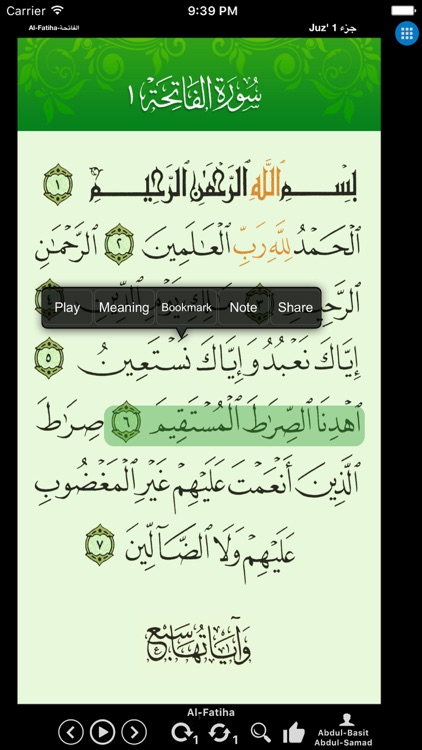 Carrier 9:39 PM
Al-Fatiha-الفاتحة Juz' 1 جزء
سُورَةُ الفَاتِحَة ١
بِسْمِ ٱللَّهِ ٱلرَّحْمَٰنِ ٱلرَّحِيمِ ١
ٱلْحَمْدُ لِلَّهِ رَبِّ ٱلْعَٰلَمِينَ ٢ ٱلرَّحْمَٰنِ
Play Meaning Bookmark Note Share
إِيَّاكَ نَعْبُدُ وَإِيَّاكَ نَسْتَعِينُ ٥
ٱهْدِنَا ٱلصِّرَٰطَ ٱلْمُسْتَقِيمَ ٦ صِرَٰطَ
ٱلَّذِينَ أَنْعَمْتَ عَلَيْهِمْ غَيْرِ ٱلْمَغْضُوبِ
عَلَيْهِمْ وَلَا ٱلضَّآلِّينَ ٧
وَآيَاتُهَا سَبْع
Al-Fatiha
1 1
Abdul-Basit
Abdul-Samad